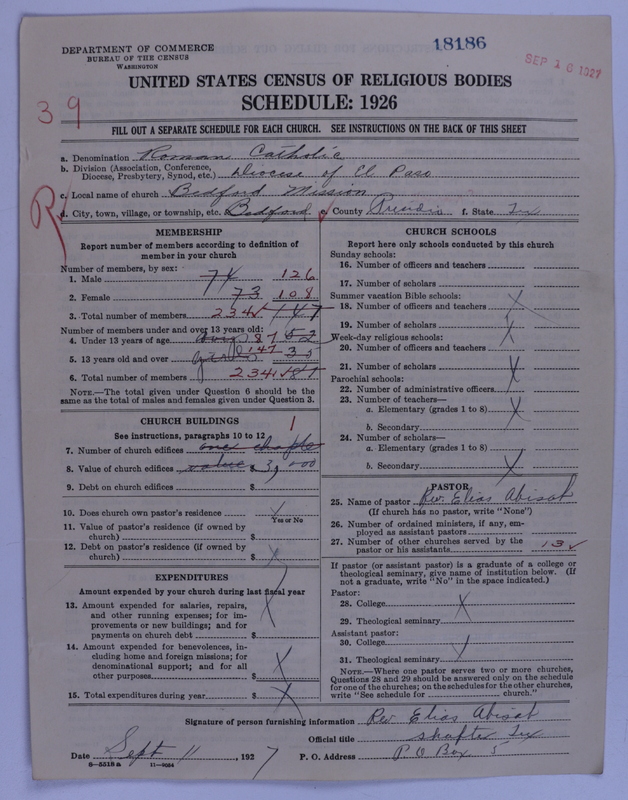 DEPARTMENT OF COMMERCE
BUREAU OF THE CENSUS
WASHINGTON
18186
SEP 16 1927
39
UNITED STATES CENSUS OF RELIGIOUS BODIES
SCHEDULE: 1926
FILL OUT A SEPARATE SCHEDULE FOR EACH CHURCH. SEE INSTRUCTIONS ON THE BACK OF THIS SHEET
a. Denomination Roman Catholic
b. Division (Association, Conference, Diocese, Presbytery, Synod, etc.) Diocese of El Paso
c. Local name of church Bedford Mission
R
d. City, town, village, or township, etc. Bedford e. County Presidio f. State Tex
MEMBERSHIP
Report number of members according to definition of
member in your church
Number of members, by sex:
1. Male 74 126
2. Female 73 108
3. Total number of members 234 147
Number of members under and over 13 years old:
4. Under 13 years of age 87 52
5. 13 years old and over 147 35
6. Total number of members 234 87
NOTE.—The total given under Question 6 should be the
same as the total of males and females given under Question 3.
CHURCH BUILDINGS
See instructions, paragraphs 10 to 12
7. Number of church edifices one 1
8. Value of church edifices value $ 3,000
9. Debt on church edifices $
10. Does church own pastor's residence
Yes or No
11. Value of pastor's residence (if owned by
church) $
12. Debt on pastor's residence (if owned by
church) $
EXPENDITURES
Amount expended by your church during last fiscal year
13. Amount expended for salaries, repairs,
and other running expenses; for im-
provements or new buildings; and for
payments on church debt $
14. Amount expended for benevolences, in-
cluding home and foreign missions; for
denominational support; and for all
other purposes $
15. Total expenditures during year $
CHURCH SCHOOLS
Report here only schools conducted by this church
Sunday schools:
16. Number of officers and teachers
17. Number of scholars
Summer vacation Bible schools:
18. Number of officers and teachers
19. Number of scholars
Week-day religious schools:
20. Number of officers and teachers
21. Number of scholars
Parochial schools:
22. Number of administrative officers
23. Number of teachers—
a. Elementary (grades 1 to 8)
b. Secondary
24. Number of scholars—
a. Elementary (grades 1 to 8)
b. Secondary
PASTOR
25. Name of pastor Rev. Elias Abisat
(If church has no pastor, write "None")
26. Number of ordained ministers, if any, em-
ployed as assistant pastors
27. Number of other churches served by the
pastor or his assistants 13
If pastor (or assistant pastor) is a graduate of a college or
theological seminary, give name of institution below. (If
not a graduate, write "No" in the space indicated.)
Pastor:
28. College
29. Theological seminary
Assistant pastor:
30. College
31. Theological seminary
NOTE.—Where one pastor serves two or more churches,
Questions 28 and 29 should be answered only on the schedule
for one of the churches; on the schedules for the other churches,
write "See schedule for church."
Signature of person furnishing information Rev. Elias Abisat
Official title Shafter Tex
Date Sept 11, 1927 P. O. Address P O Box 5
6-5518 a 11-9024